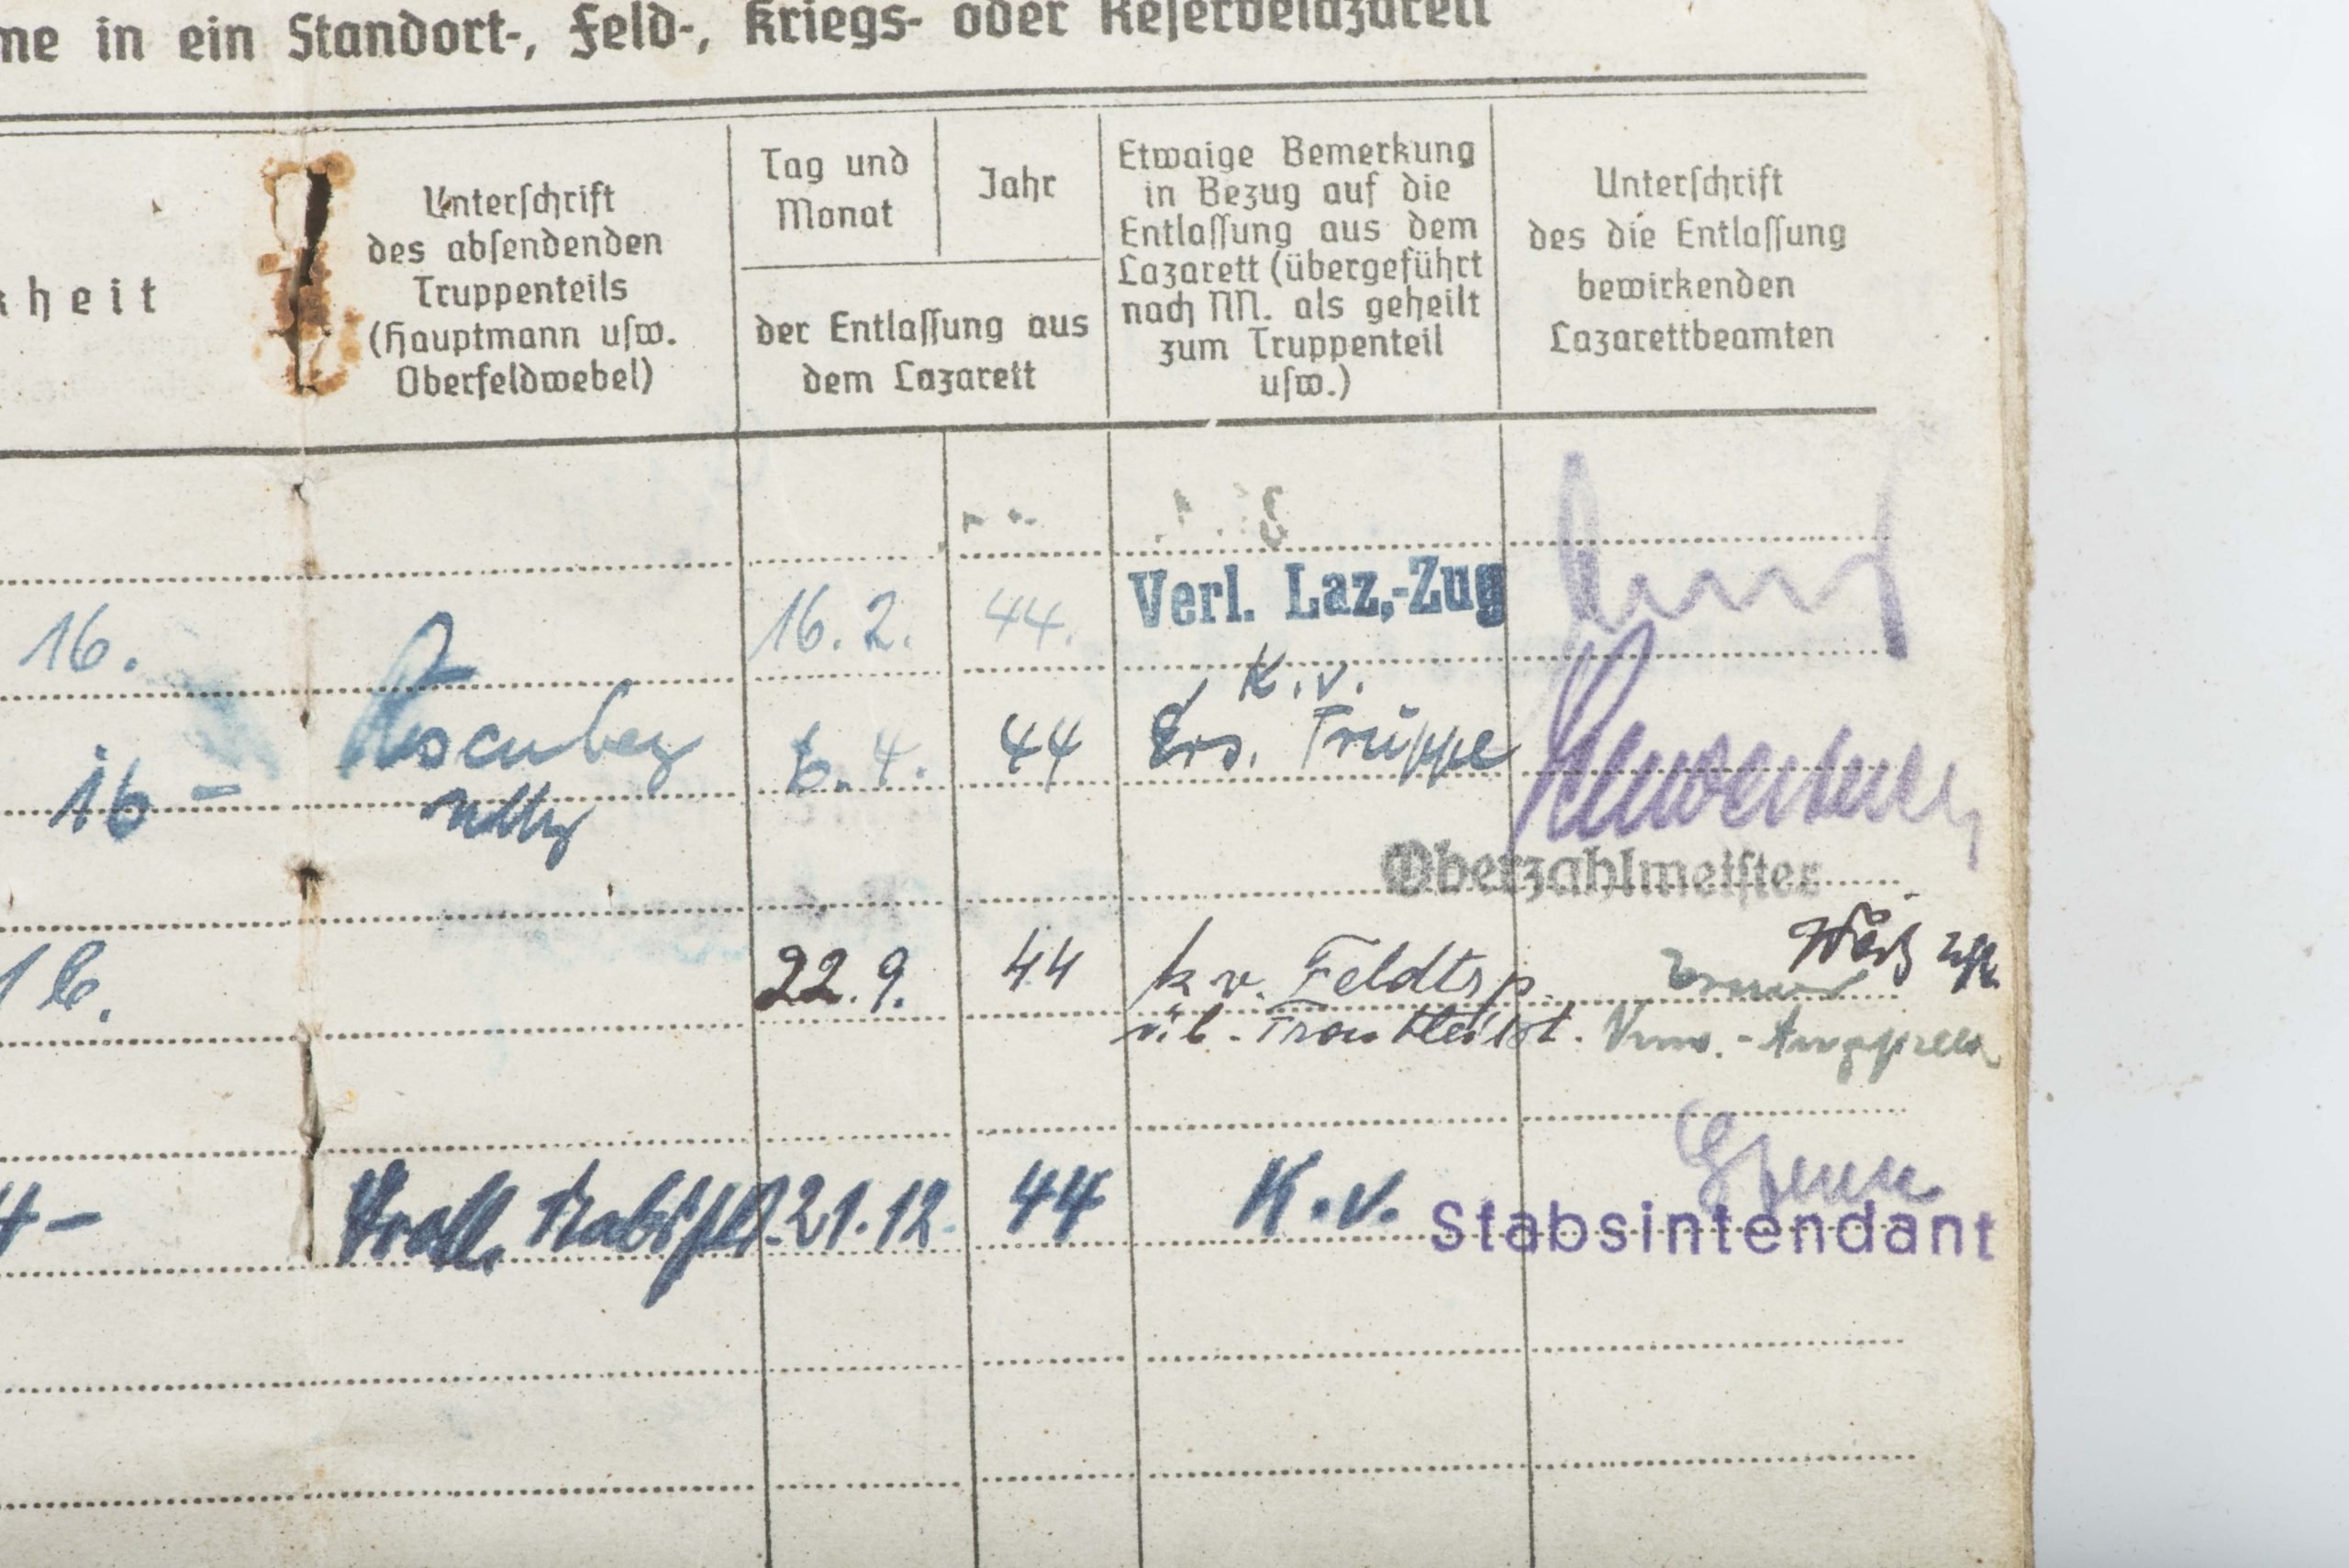 me in ein Standort-, Feld-, Kriegs- oder Reservelazarett
heit
Unterschrift
des absendenden
Truppenteils
(Hauptmann usw.
Oberfeldwebel)
Tag und
Monat
Jahr
der Entlassung aus
dem Lazarett
Etwaige Bemerkung
in Bezug auf die
Entlassung aus dem
Lazarett (übergeführt
nach NN. als geheilt
zum Truppenteil
usw.)
Unterschrift
des die Entlassung
bewirkenden
Lazarettbeamten
16. 16. 2. 44. Verl. Laz.-Zug
K.v.
16 - Rosenberg 6. 4. 44 Ers. Truppe
Uffz
Oberzahlmeister
16. 22. 9. 44 k v. Feldtrp.
4 - 21.12. 44 K.v.
Stabsintendant